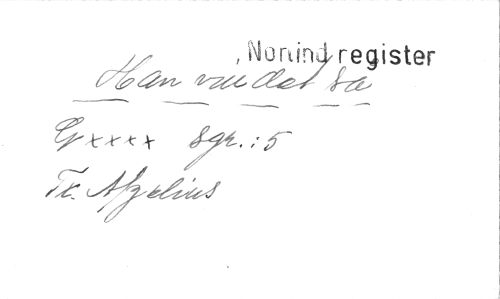 Nonind register
Han vill det så
G x x x x sgr.: 5
Tx. Afzelius